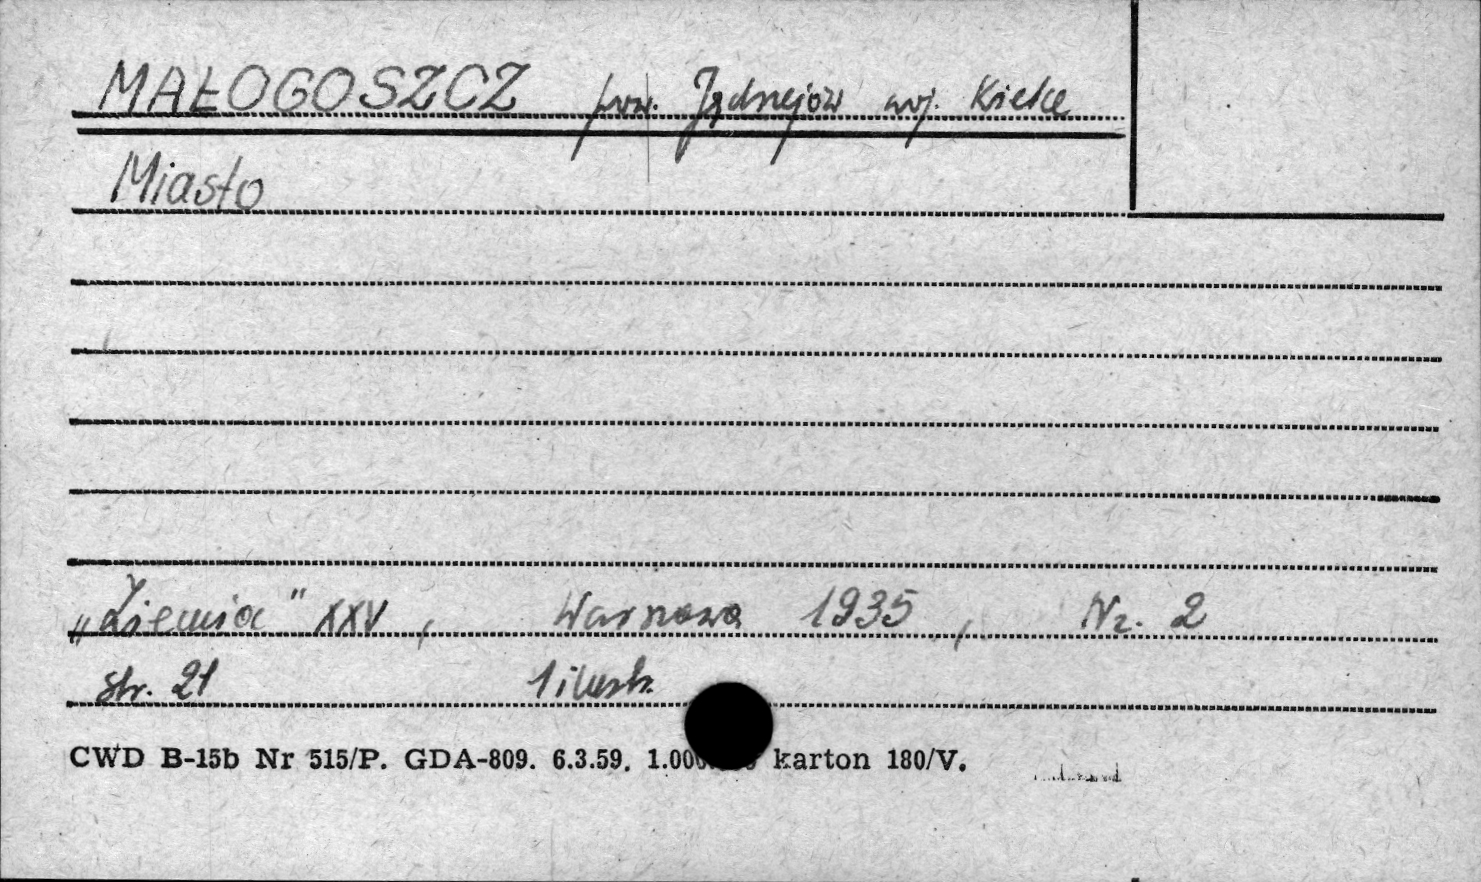 MAŁOGOSZCZ pow. Jędrzejów woj. Kielce
Miasto
„Ziemia" XXV, Warszawa 1935, Nr. 2
str. 21 1 ilustr.
CWD B-15b Nr 515/P. GDA-809. 6.3.59. 1.000.000 karton 180/V.